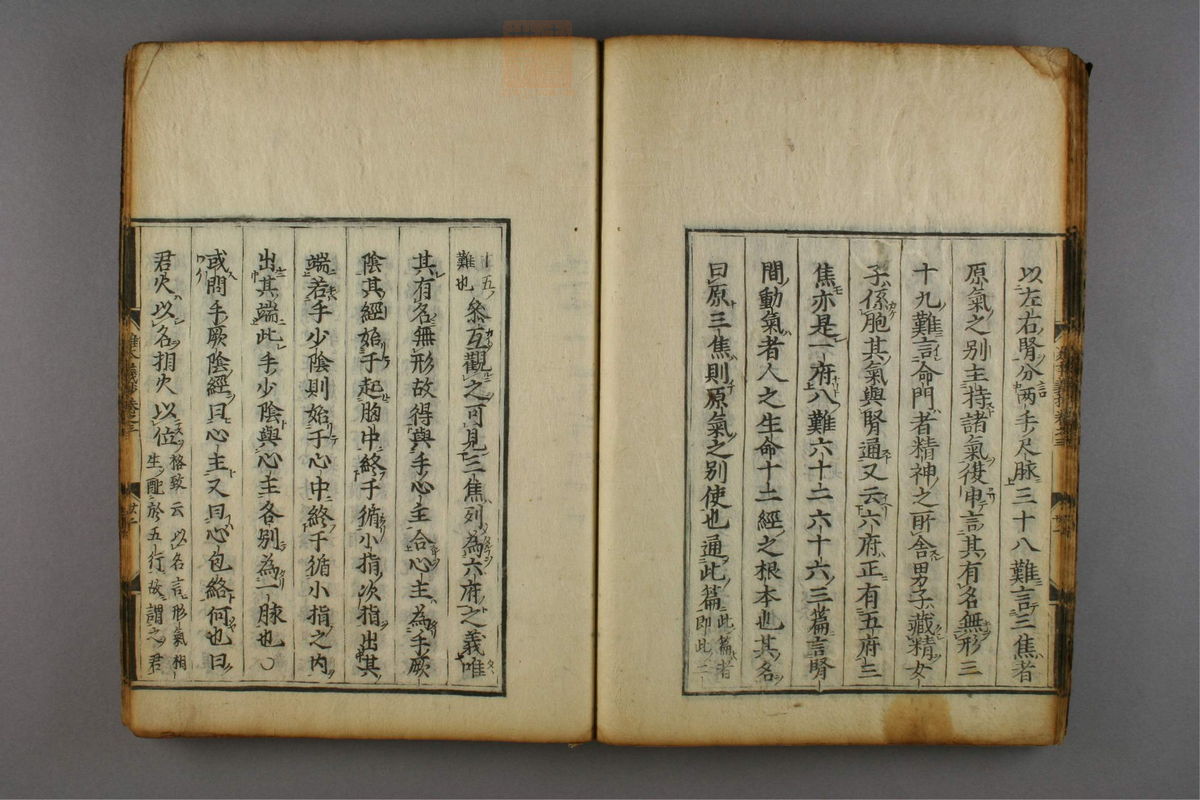 以左右腎分兩手尺脉三十八難言三焦者
原氣之别主持諸氣復申言其有名無形三
十九難言命門者精神之所舎男子藏精女
子係胞其氣與腎通又云六府正有五府三
焦亦是一府八難六十二六十六三篇言腎
間動氣者人之生命十二經之根本也其名
曰原三焦則原氣之别使也通此篇此篇者即此三
十五難也叅互觀之可見三焦列為六府之義唯
其有名無形故得與手心主合心主為手厥
陰其經始于起胸中終于循小指次指出其
端若手少陰則始于心中終于循小指之内
出其端此手少陰與心主各别為一脉也○
或問手厥陰經曰心主又曰心包絡何也曰
君火以名相火以位格致云以名言形氣相生配於五行故謂之君